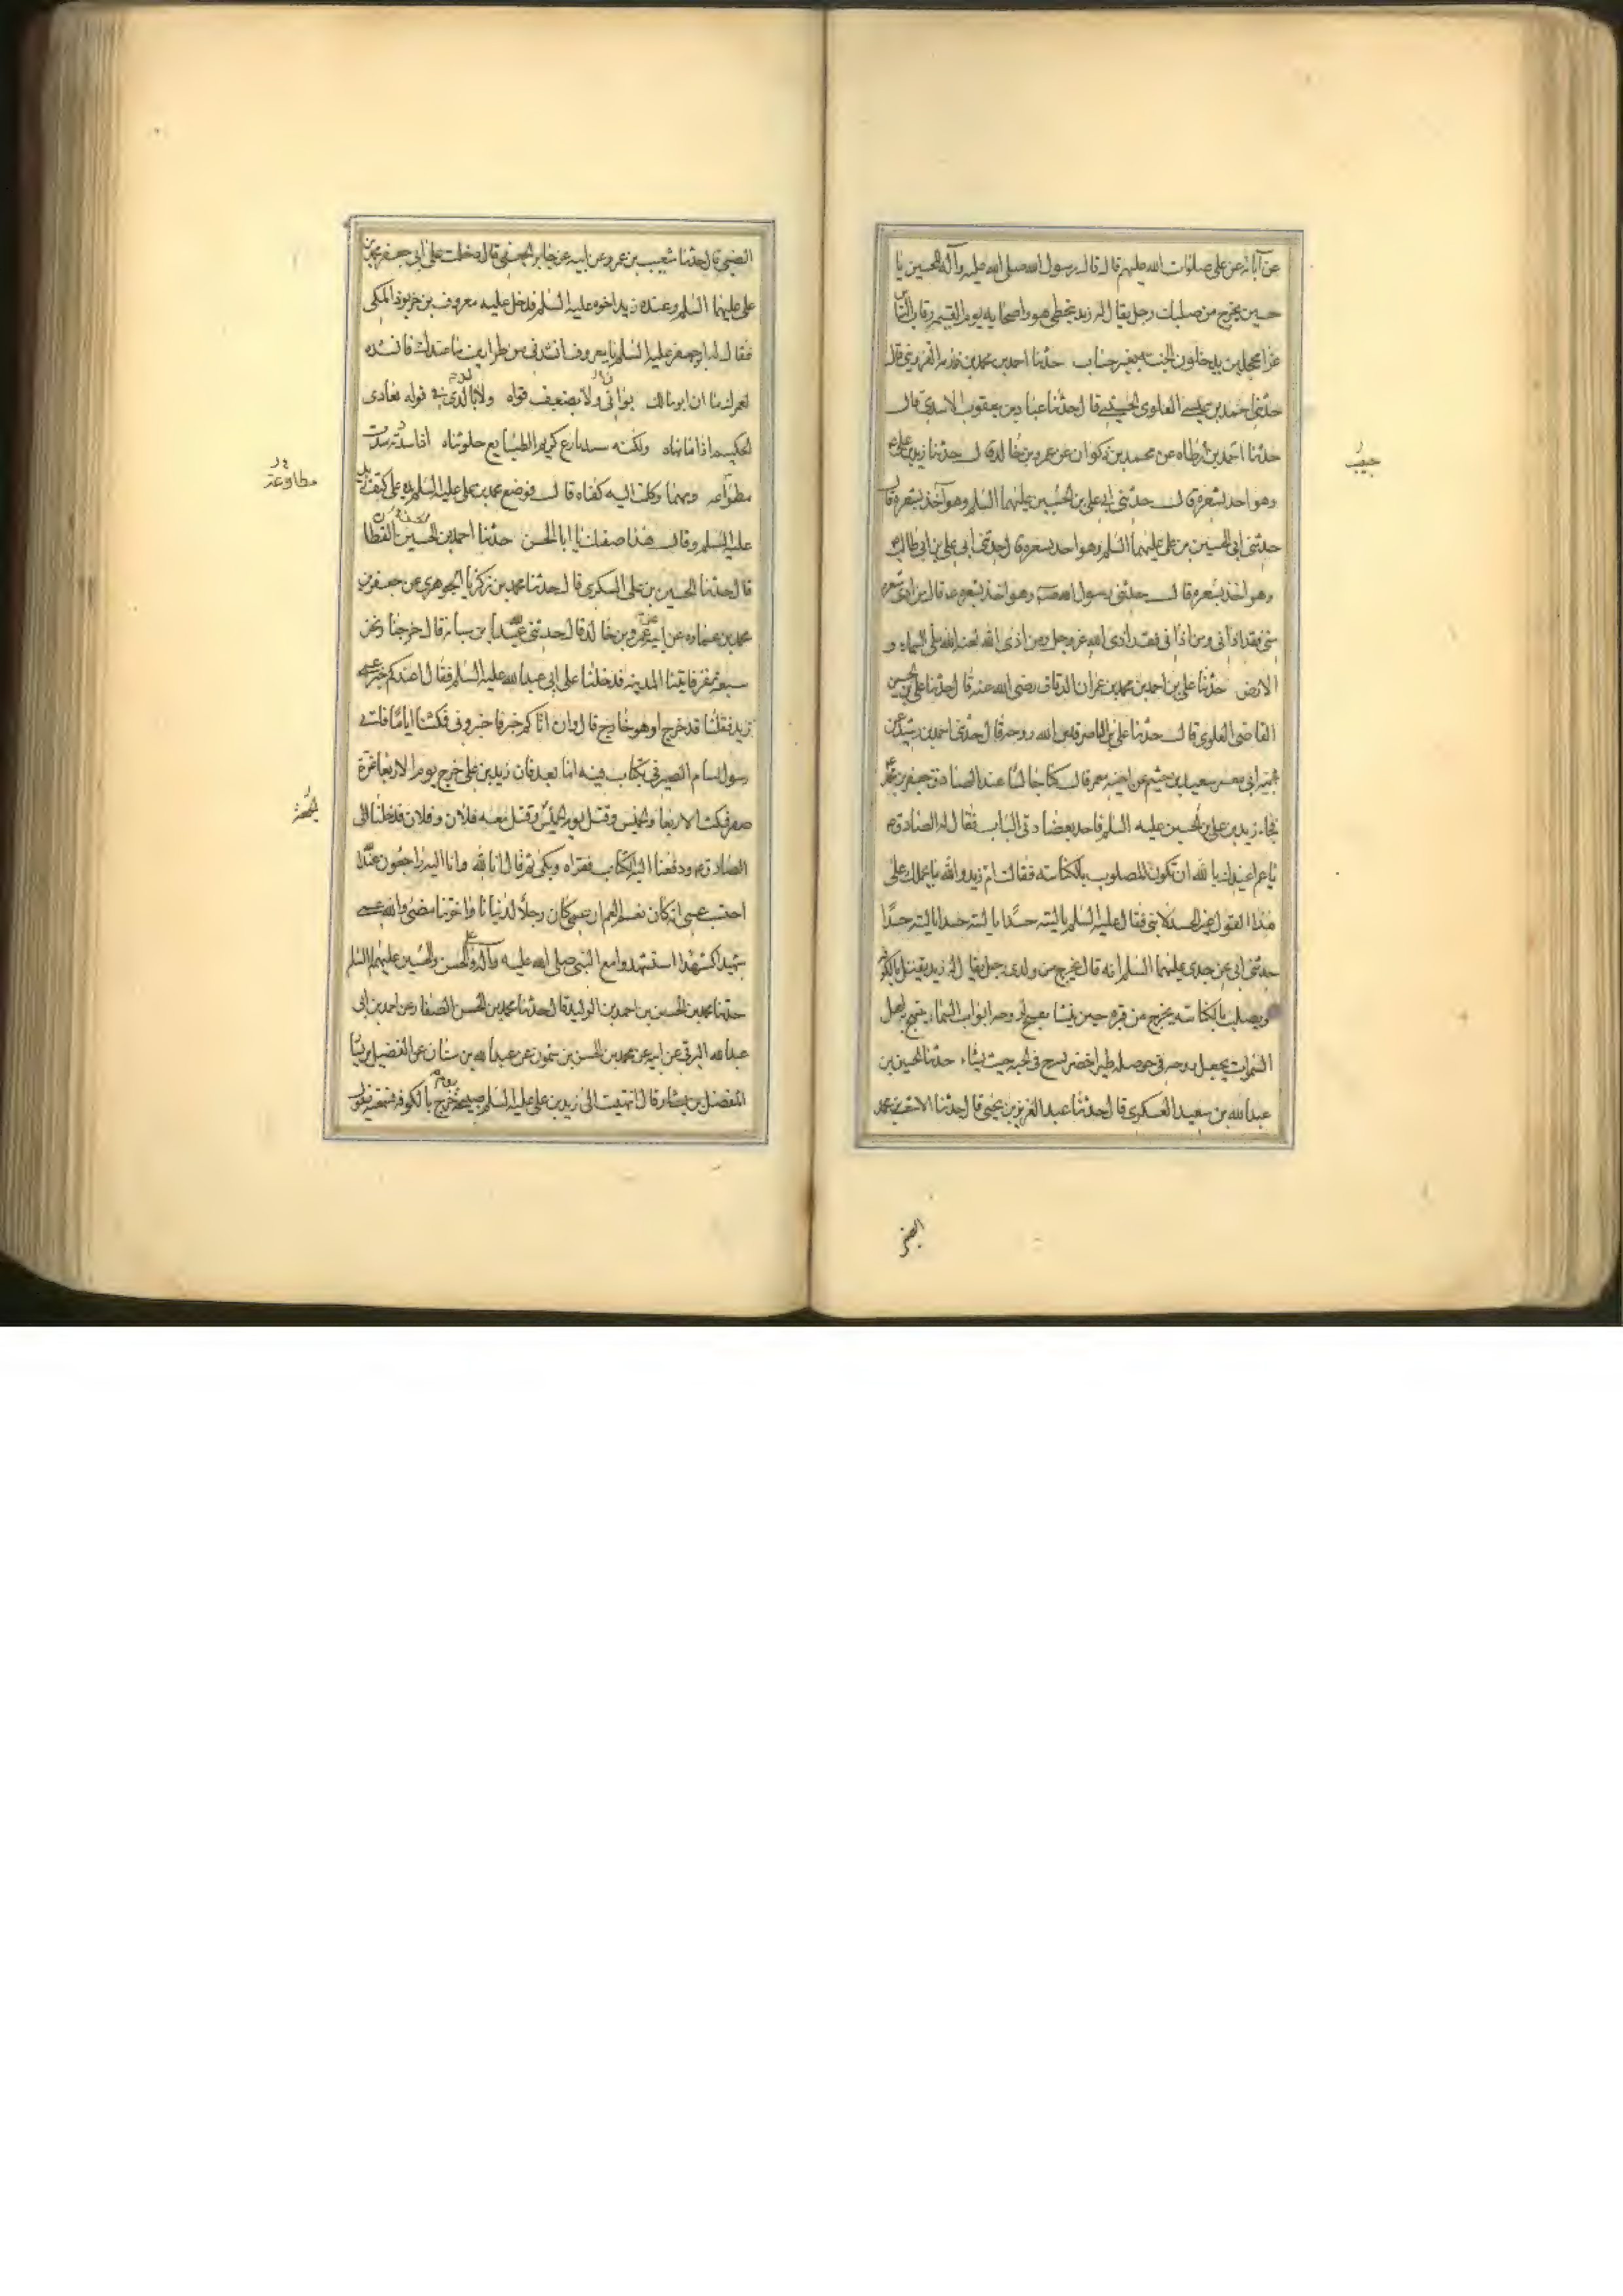 عن آبائه عن علي صلوات الله عليهم قال قال رسول الله صلى الله عليه وآله للحسين يا
حسين يخرج من صلبك رجل يقال له زيد يتخطى هو واصحابه يوم القيمة رقاب الناس
غرا محجلين يدخلون الجنة بغير حساب حدثنا احمد بن محمد بن رزمة القزويني قال
حدثني احمد بن عيسى العلوي الحسيني قال حدثنا عباد بن يعقوب الاسدي قال
حبيب
حدثنا احمد بن ارطاه عن محمد بن ذكوان عن عمرو بن خالد قال حدثنا زيد بن علي
وهو اخذ بشعره قال حدثني ابي علي بن الحسين عليهما السلم وهو آخذ بشعره قال
حدثني ابي الحسين بن علي عليهما السلم وهو اخذ بشعره قال حدثني ابي علي بن ابي طالب
وهو اخذ بشعره قال حدثني رسول الله وهو اخذ بشعره قال من اذى شعره
مني فقد اذاني ومن اذاني فقد اذى الله عز وجل ومن اذى الله لعنه الله ملأ السماء و
الارض حدثنا علي بن احمد بن محمد بن عمران الدقاق رضي الله عنه قال حدثنا علي بن الحسين
القاضي العلوي قال حدثنا علي بن الناصر قدس الله روحه قال حدثني احمد بن رشيد عن
عمه ابي معمر سعيد بن خثيم عن اخيه معمر قال كنا جالسا عند الصادق جعفر بن محمد
فجاء زيد بن علي بن الحسين عليه السلم فاخذ بعضادتي الباب فقال له الصادق
يا عم اعيذك بالله ان تكون المصلوب بالكناسة فقالت ام زيد والله ما يحملك على
هذا القول غير الحسد لابني فقال عليه السلم يا ليته حسدا يا ليته حسدا يا ليته حسدا
حدثني ابي عن جدي عليهما السلم انه قال يخرج من ولدي رجل يقال له زيد يقتل بالكوفة
ويصلب بالكناسة يخرج من قبره حين ينشا يفتح لروحه ابواب السماء يتبهج به اهل
السموات يجعل روحه في حوصلة طير اخضر يسرح في الجنة حيث يشاء حدثنا الحسين بن
عبدالله بن سعيد العسكري قال حدثنا عبد العزيز بن يحيى قال حدثنا الاشعث بن محمد
الضبي
الضبي قال حدثنا شعيب بن عمرو عن ابيه عن جابر الجعفي قال دخلت على ابي جعفر محمد بن
علي عليهما السلم وعنده زيد اخوه عليه السلم فدخل عليه معروف بن خربوذ المكي
فقال له ابو جعفر عليه السلم يا معروف انشدني من طرايف ما عندك فانشده
لعمرك ما ان ابو مالك بواني ولا بضعيف قواه ولا بالدى قوله يعادي
الحكيم اذا ما نهاه ولكنه سيد بارع كريم الطبايع حلو نثاه اذا سدته سدت
مطاوعة
مطواعة ومهما وكلت اليه كفاه قال فوضع محمد بن علي عليه السلم يده على كتفي زيد
عليه السلم وقال هذا صفتك يا ابا الحسن حدثنا احمد بن الحسين القطان
قال حدثنا الحسين بن علي السكري قال حدثنا محمد بن زكريا الجوهري عن جعفر بن
محمد بن عماره عن ابيه عن عمرو بن خالد قال حدثني عبدالله بن سيابة قال خرجنا ونحن
سبعة نفر فاتينا المدينة فدخلنا على ابي عبدالله عليه السلم فقال اعندكم خبر عمي
زيد فقلنا قد خرج او هو خارج قال وان اتاكم خبر فاخبروني فمكثنا اياما فاتى
رسول بسام الصيرفي بكتاب فيه اما بعد فان زيد بن علي خرج يوم الاربعا غرة
الجمعة
صفر فمكث الاربعا والخميس وقتل يوم الخميس وقتل معه فلان وفلان فدخلنا الى
الصادق ودفعنا اليه الكتاب فقراه وبكى ثم قال انا لله وانا اليه راجعون عند الله
احتسب عمي انه كان نعم العم ان عمي كان رجلا لدنيانا واخرتنا مضى والله عمي
شهيدا كشهدا استشهدوا مع النبي صلى الله عليه وآله وعلي والحسن والحسين عليهم السلم
حدثنا محمد بن الحسن بن احمد بن الوليد قال حدثنا محمد بن الحسن الصفار عن احمد بن ابي
عبدالله البرقي عن ابيه عن محمد بن الحسن بن شمون عن عبدالله بن سنان عن الفضيل بن يسار
المفضل بن يسار قال انتهيت الى زيد بن علي عليه السلم صبيحة يوم خرج بالكوفة فسمعته يقول